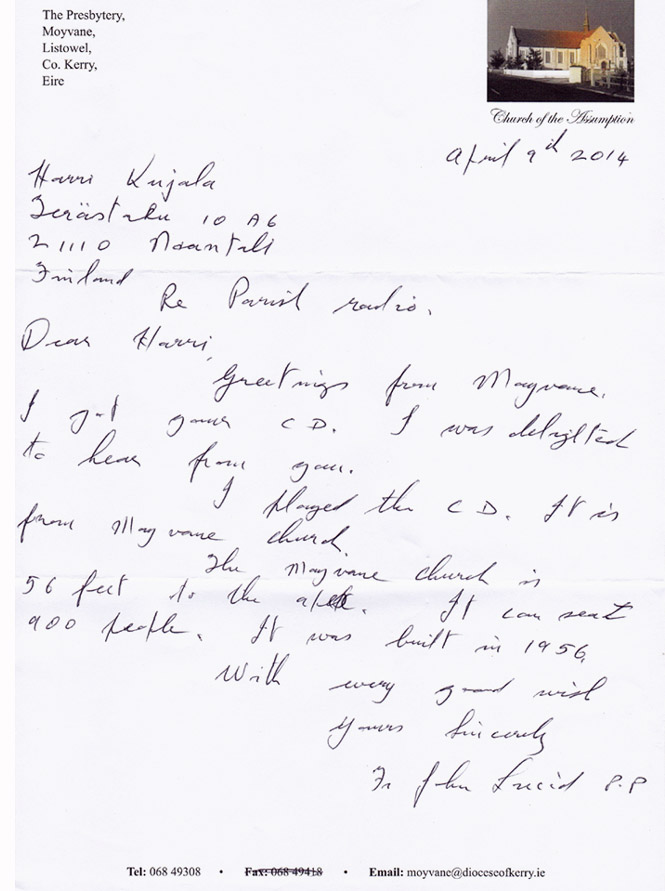 The Presbytery,
Moyvane,
Listowel,
Co. Kerry,
Eire
Church of the Assumption
April 9th 2014
Harri Kujala
10 A6
21110 Naantali
Finland
Re Parish radio.
Dear Harri,
Greetings from Moyvane.
I got your CD. I was delighted
to hear from you.
I played the CD. It is
from Moyvane church.
The Moyvane church is
56 feet to the apex. It can seat
900 people. It was built in 1956.
With every good wish
Yours Sincerely
Fr John Lucid P.P
Tel: 068 49308 • Fax: 068 49418 • Email: moyvane@dioceseofkerry.ie